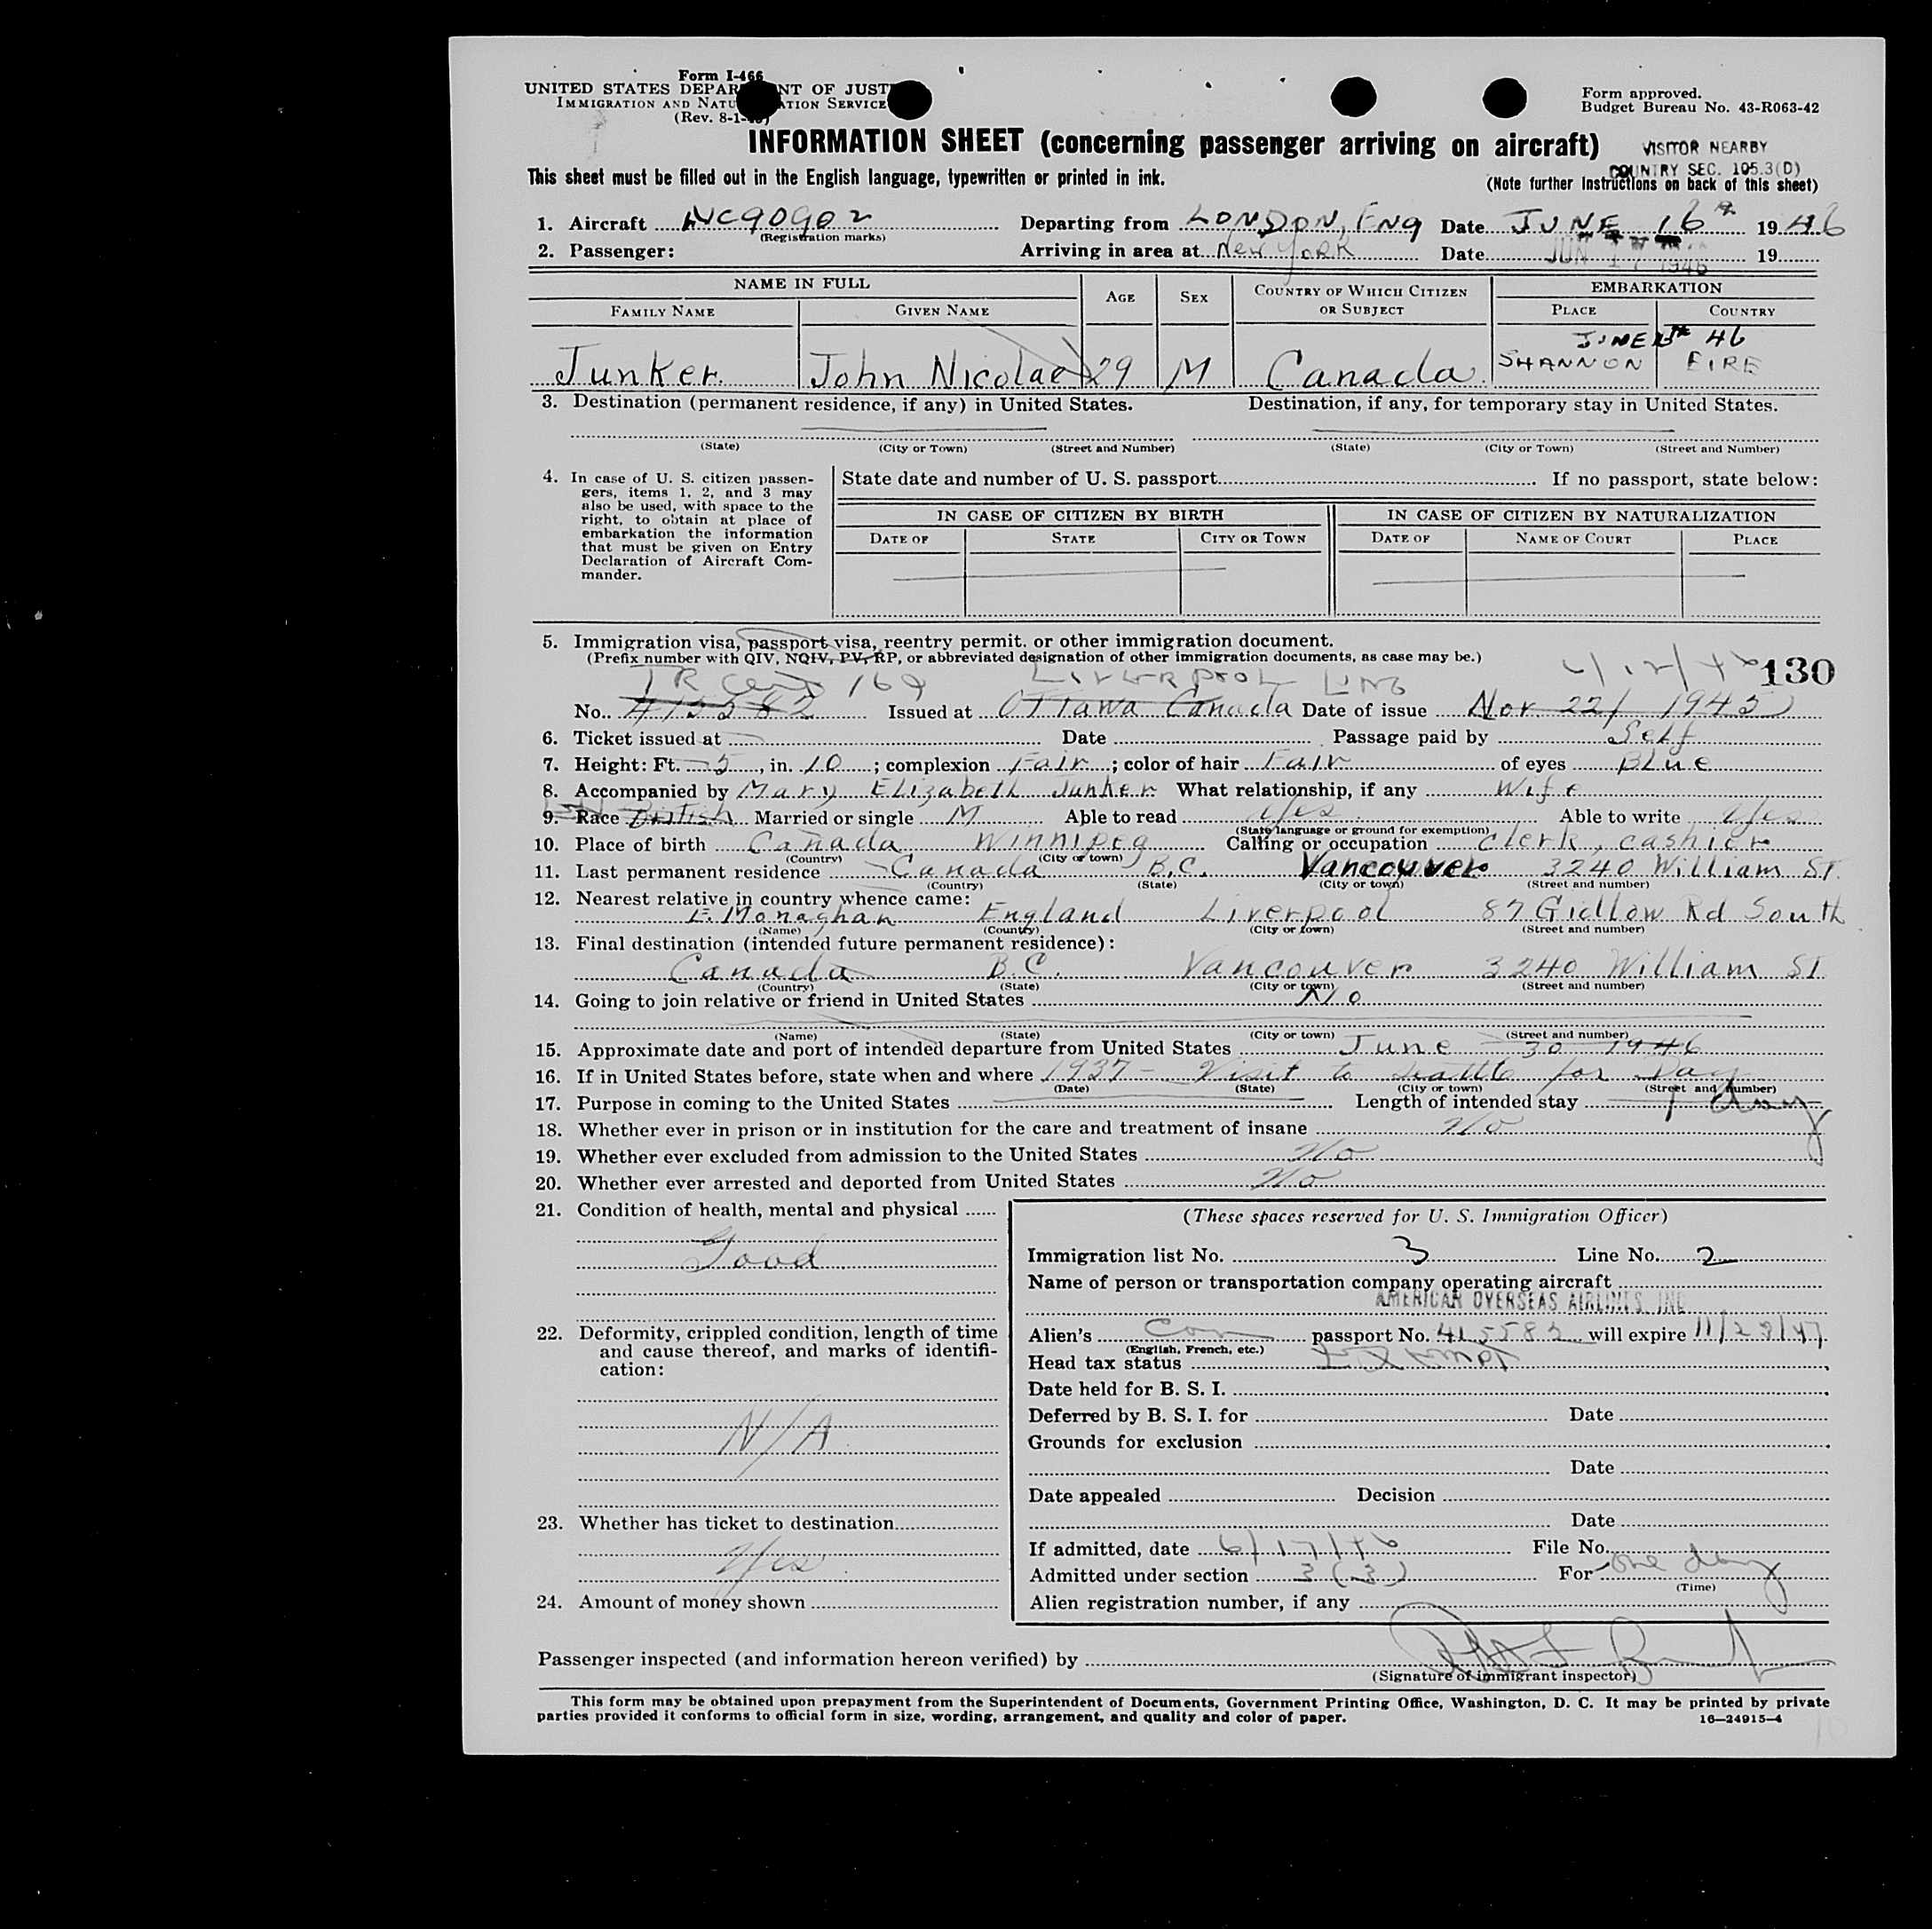 Form I-466
UNITED STATES DEPAR NT OF JUST
IMMIGRATION AND NATU ATION SERVICE
(Rev. 8-1-
Form approved.
Budget Bureau No. 43-R063-42
INFORMATION SHEET (concerning passenger arriving on aircraft)
VISITOR NEARBY
COUNTRY SEC. 105.3(D)
This sheet must be filled out in the English language, typewritten or printed in ink.
(Note further Instructions on back of this sheet)
1. Aircraft NC90902 Departing from LONDON, ENG Date JUNE 16 1946
(Registration marks)
2. Passenger: Arriving in area at New York Date JUN 17 1946 19
NAME IN FULL AGE SEX COUNTRY OF WHICH CITIZEN OR SUBJECT EMBARKATION
FAMILY NAME GIVEN NAME PLACE COUNTRY
JUNE 46
Junker John Nicolae 29 M Canada SHANNON EIRE
3. Destination (permanent residence, if any) in United States. Destination, if any, for temporary stay in United States.
(State) (City or Town) (Street and Number) (State) (City or Town) (Street and Number)
4. In case of U. S. citizen passen-
gers, items 1, 2, and 3 may
also be used, with space to the
right, to obtain at place of
embarkation the information
that must be given on Entry
Declaration of Aircraft Com-
mander.
State date and number of U. S. passport If no passport, state below:
IN CASE OF CITIZEN BY BIRTH IN CASE OF CITIZEN BY NATURALIZATION
DATE OF STATE CITY OR TOWN DATE OF NAME OF COURT PLACE
5. Immigration visa, passport visa, reentry permit, or other immigration document.
(Prefix number with QIV, NQIV, PV, RP, or abbreviated designation of other immigration documents, as case may be.)
TR Cert 169 LIVERPOOL ENG 6/12/46 130
No. Issued at Ottawa Canada Date of issue Nov. 22/ 1945
6. Ticket issued at Date Passage paid by Self
7. Height: Ft. 5, in. 10; complexion Fair; color of hair Fair of eyes Blue
8. Accompanied by Mary Elizabeth Junker What relationship, if any Wife
9. Race British Married or single M Able to read Yes Able to write Yes
(State language or ground for exemption)
10. Place of birth Canada Winnipeg Calling or occupation clerk, cashier
(Country) (City or town)
11. Last permanent residence Canada B.C. Vancouver 3240 William ST.
(Country) (State) (City or town) (Street and number)
12. Nearest relative in country whence came:
E. Monaghan England Liverpool 87 Gidlow Rd South
(Name) (Country) (City or town) (Street and number)
13. Final destination (intended future permanent residence):
Canada B.C. Vancouver 3240 William ST.
(Country) (State) (City or town) (Street and number)
14. Going to join relative or friend in United States No
(Name) (State) (City or town) (Street and number)
15. Approximate date and port of intended departure from United States June 30 1946
16. If in United States before, state when and where 1937 - Visit to Seattle for Day
(Date) (State) (City or town) (Street and number)
17. Purpose in coming to the United States Length of intended stay 1 day
18. Whether ever in prison or in institution for the care and treatment of insane No
19. Whether ever excluded from admission to the United States No
20. Whether ever arrested and deported from United States No
21. Condition of health, mental and physical
Good
22. Deformity, crippled condition, length of time
and cause thereof, and marks of identifi-
cation:
N/A
23. Whether has ticket to destination
Yes
24. Amount of money shown
(These spaces reserved for U. S. Immigration Officer)
Immigration list No. 3 Line No. 2
Name of person or transportation company operating aircraft
AMERICAN OVERSEAS AIRLINES, INC
Alien's Can passport No. 415582 will expire 11/28/47
(English, French, etc.)
Head tax status Exempt
Date held for B. S. I.
Deferred by B. S. I. for Date
Grounds for exclusion
Date
Date appealed Decision
Date
If admitted, date 6/17/46 File No.
Admitted under section 3 (3) For one day
(Time)
Alien registration number, if any
Passenger inspected (and information hereon verified) by
(Signature of immigrant inspector)
This form may be obtained upon prepayment from the Superintendent of Documents, Government Printing Office, Washington, D. C. It may be printed by private
parties provided it conforms to official form in size, wording, arrangement, and quality and color of paper.
16—24915-4